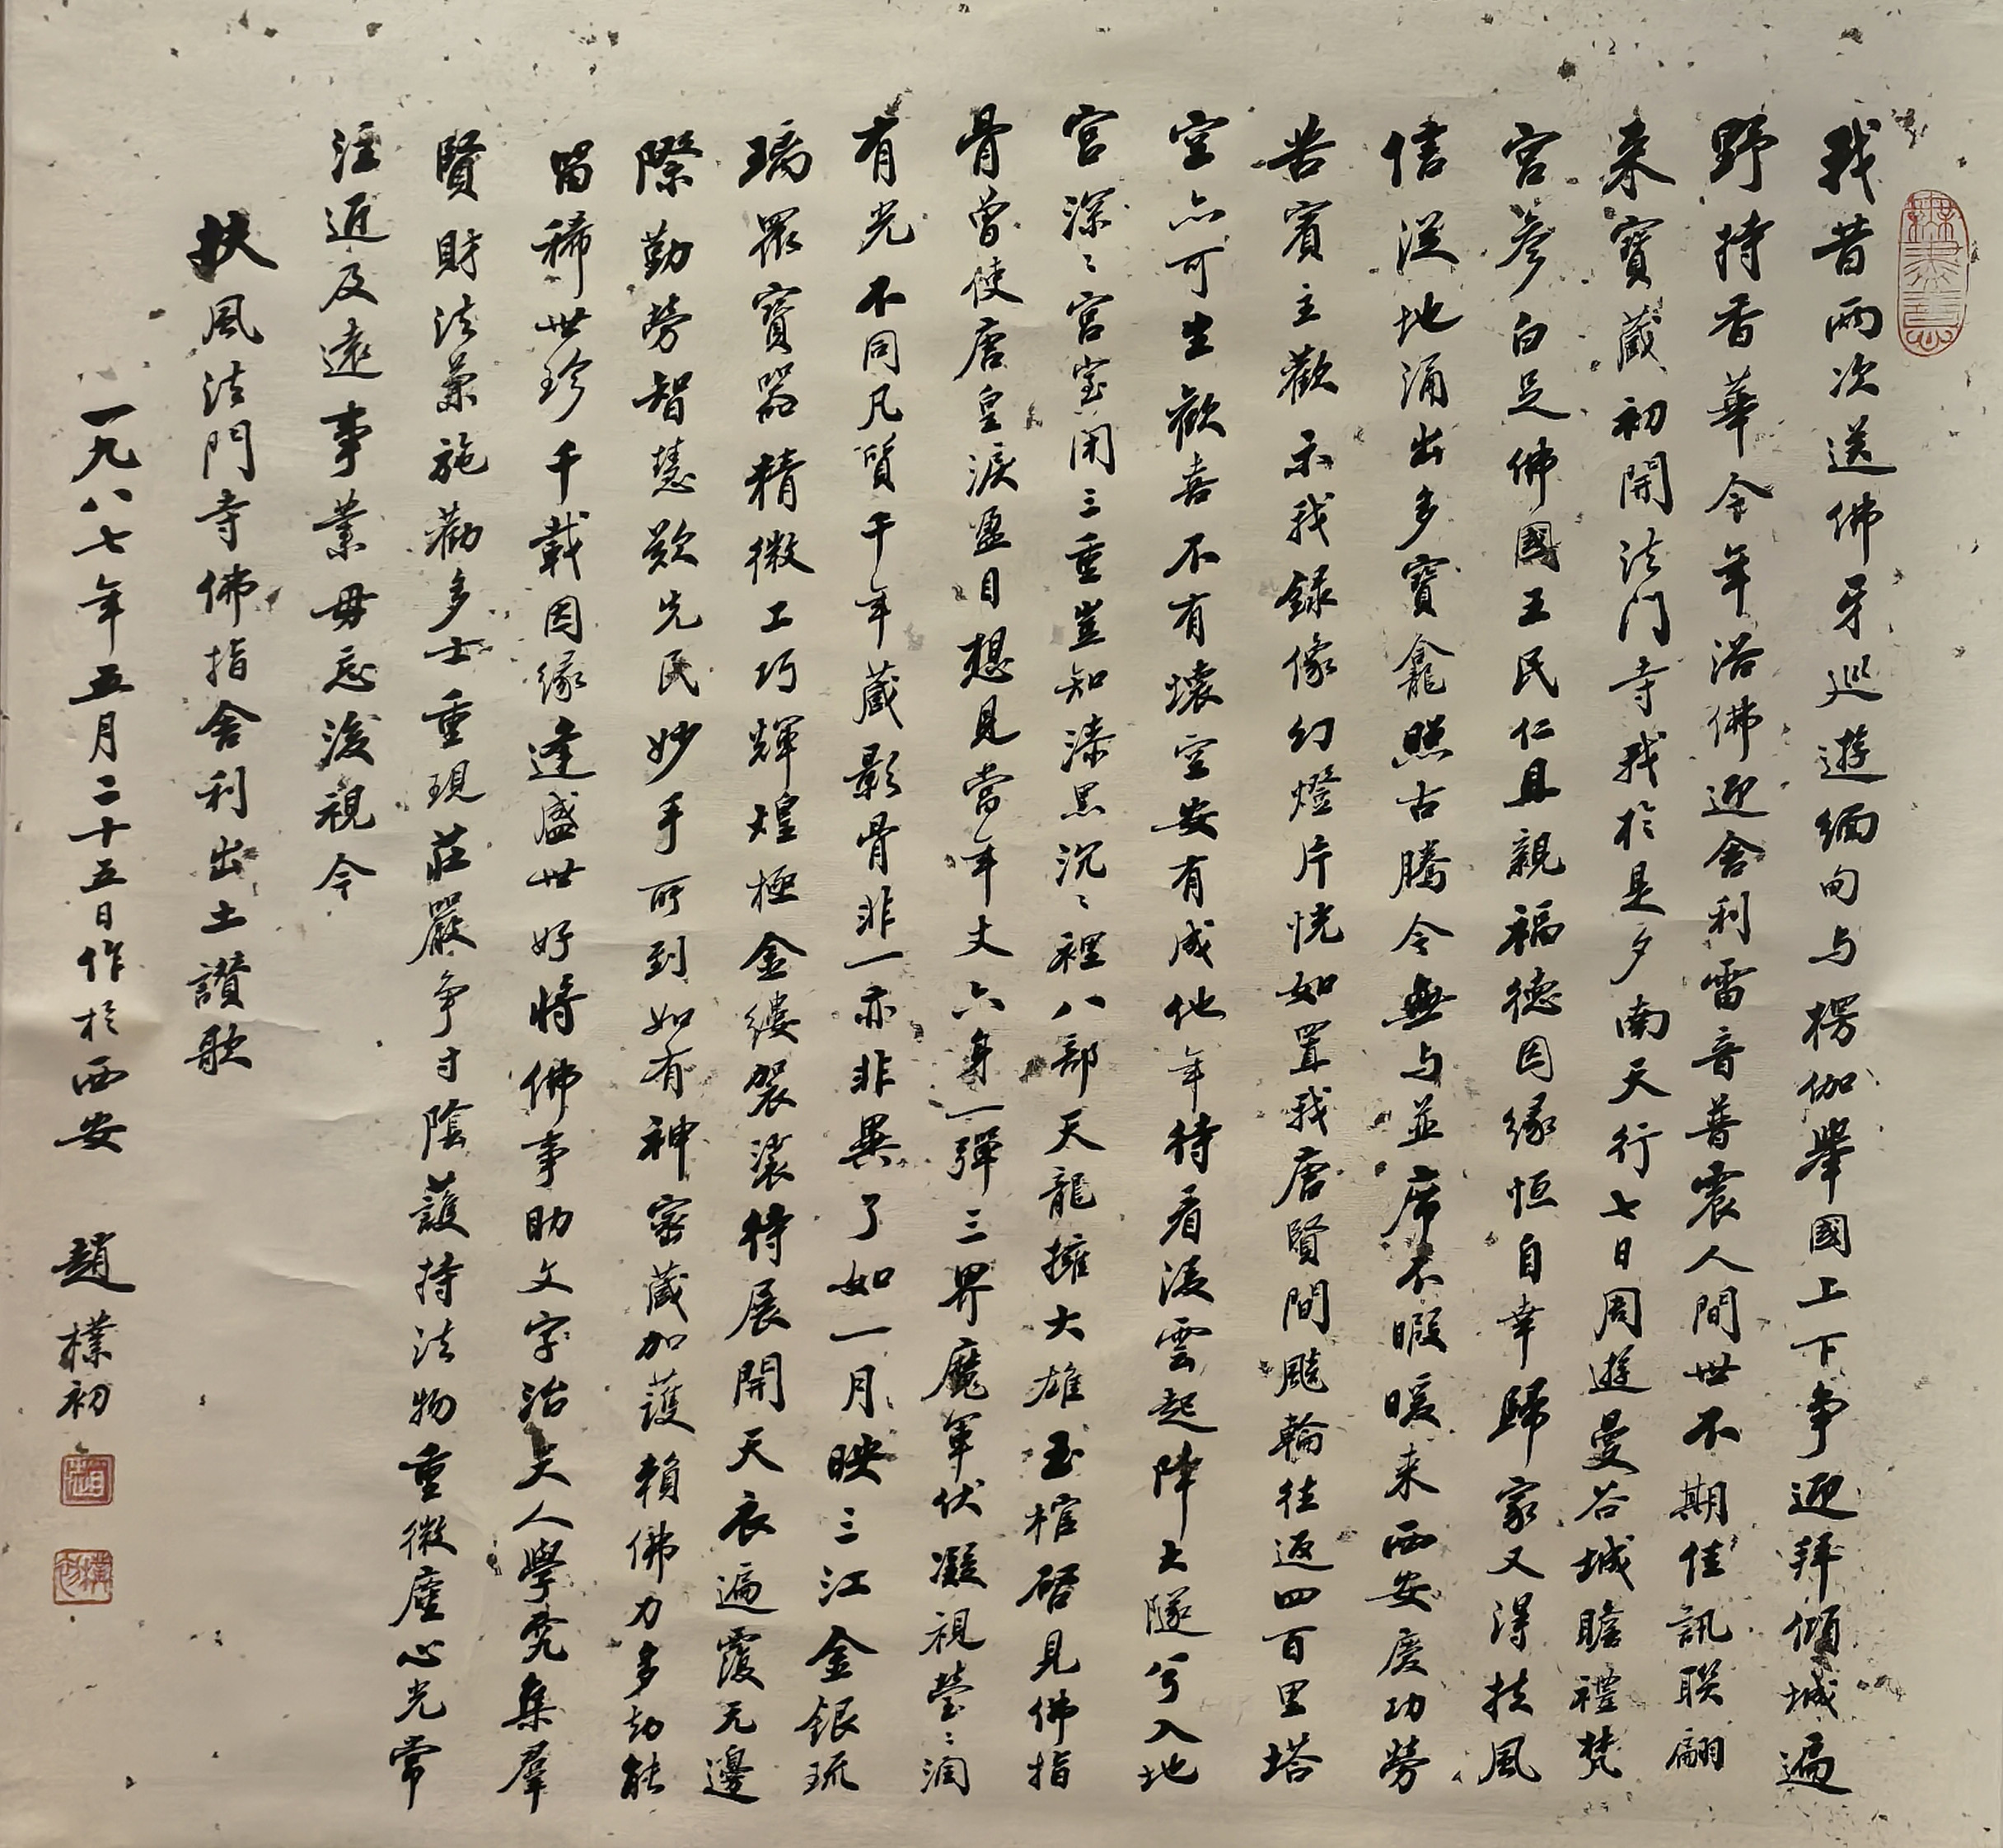 我昔兩次送佛牙巡遊緬甸与楞伽舉國上下争迎拜傾城遍
野持香華今年浴佛迎舍利雷音普震人間世不期佳訊联翩
来寶藏初開法门寺我於是夕南天行七日周遊曼谷城瞻禮梵
宮參白足佛國王民仁且親福德因緣恒自幸歸家又得扶風
信從地涌出多寶龕照古騰今無与並席不暇暖来西安慶功勞
苦賓主歡示我録像幻燈片恍如置我唐賢間飈輪往返四百里塔
空亦可生歡喜不有壞空安有成他年待看凌雲起降大隧兮入地
宮深〻宮室閉三重豈知漆黑沉〻裡八部天龍擁大雄玉棺啓見佛指
骨曾使唐皇淚盈目想見當年丈六身一彈三界魔軍伏凝視瑩〻潤
有光不同凡質千年藏影骨非一亦非異了如一月映三江金銀琉
璃眾寶器精微工巧輝煌極金縷袈裟特展開天衣遍覆无邊
際勤勞智慧歎先民妙手所到如有神密藏加護賴佛力多劫能
留稀世珍千載因緣逢盛世好將佛事助文字治天人學究集羣
賢財法兼施勸多士重現莊嚴争寸陰護持法物重微塵心光常
注近及遠事業毋忘後視今
扶風法門寺佛指舍利出土讚歌
一九八七年五月二十五日作於西安 趙樸初
樸初